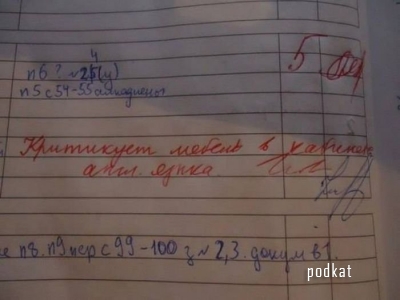 4
п6 ? №25(у) 5
п5 с 54-55 алкадиены
Критикует мебель в кабинете
англ. языка
п8. п9 пер с 99-100 з №2,3. докум в 1
podkat